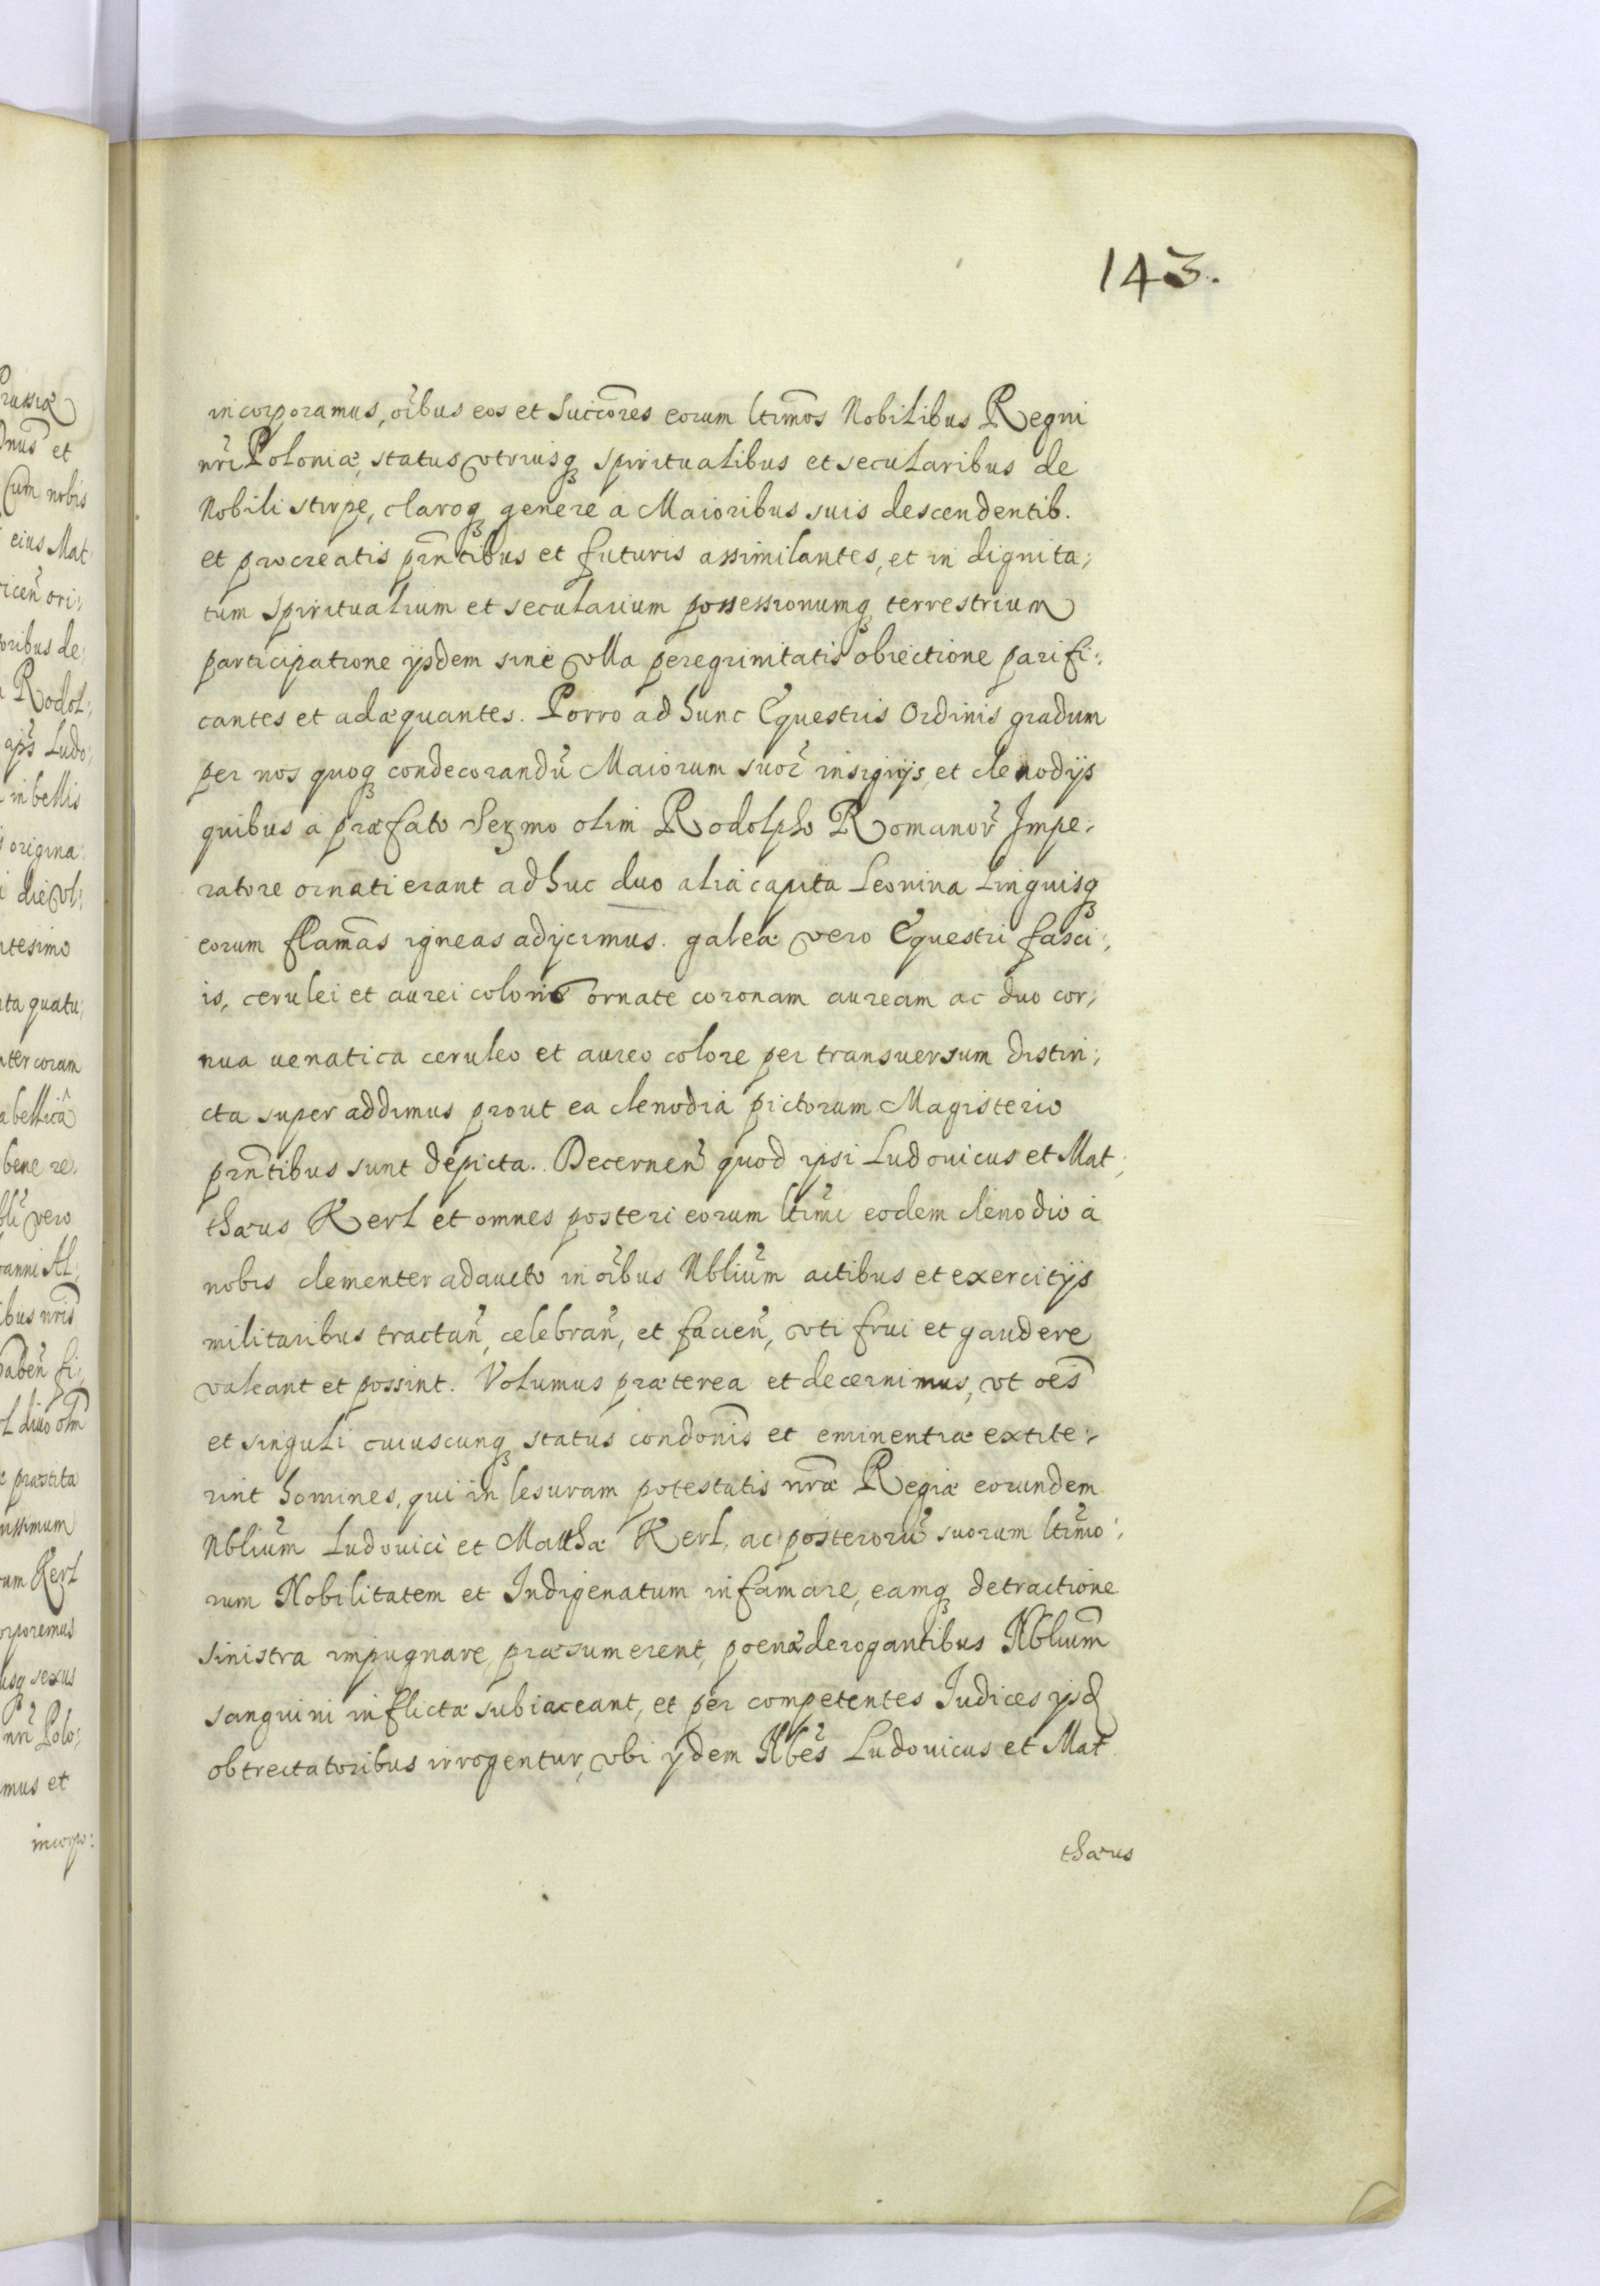 143.
incorporamus, oĩbus eos et Succõres eorum ltĩmos Nobilibus Regni
nrĩ Poloniæ, status vtriusqꝫ spiritualibus et secularibus de
Nobili stirpe, claroqꝫ genere a Maioribus suis descendentib.
et procreatis prñtibus et futuris assimilantes, et in dignita:
tum spiritualium et secularium possessionumqꝫ terrestrium
participatione ijsdem sine vlla peregrinitatis obiectione parifi:
cantes et adæquantes. Porro ad hunc Equestris Ordinis gradum
per nos quoqꝫ condecorandũ Maiorum suoꝝ insignijs, et clenodijs
quibus a præfato Serꝫmo olim Rodolpho Romanoꝝ Impe:
ratore ornati erant adhuc duo alia capita Leonina Linguisqꝫ
eorum flam̃as igneas adijcimus. galeæ vero Equestri fasci:
is, cerulei et aurei coloris ornate coronam auream ac duo cor:
nua uenatica ceruleo et aureo colore per transuersum distin:
cta super addimus prout ea clenodia pictorum Magisterio
prñtibus sunt depicta. Decerneñ quod ipsi Ludouicus et Mat:
thæus Kerl et omnes posteri eorum ltĩmi eodem clenodio a
nobis clementer adaucto in oĩbus Nbliũm actibus et exercitijs
militaribus tractañ, celebrañ, et facieñ, vti frui et gaudere
valeant et possint. Volumus præterea et decernimus, vt oẽs
et singuli cuiuscunqꝫ status condonĩs et eminentiæ extite:
rint homines, qui in lesuram potestatis nrãe Regiæ eorundem
Nbliũm Ludouici et Matthæ Kerl, ac posterorũ suorum ltĩmo:
rum Nobilitatem et Indigenatum infamare, eamqꝫ detractione
sinistra impugnare præsumerent, poenæ derogantibus Nbliũm
sanguini inflictæ subiaceant, et per competentes Iudices ijsd
obtrectatoribus irrogentur, vbi ijdem Nblẽs Ludouicus et Mat
thæus